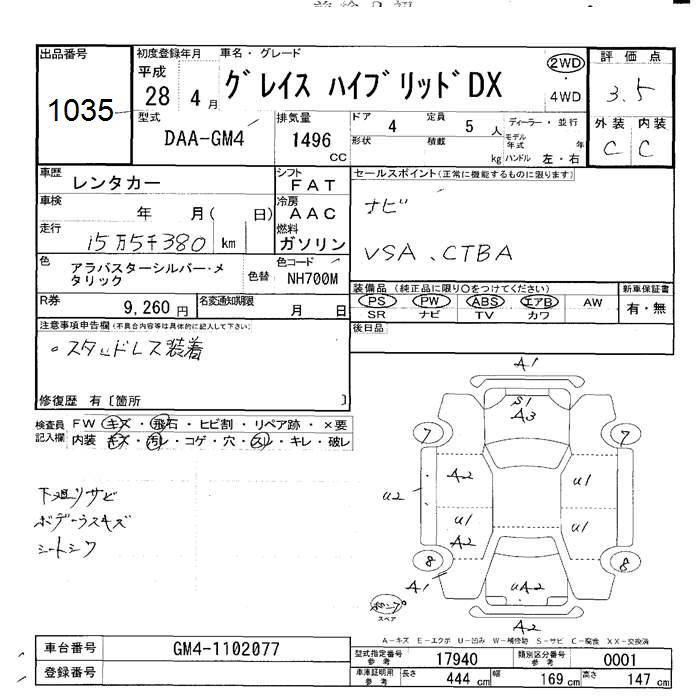 出品番号 初度登録年月 車名・グレード 評価点
1035 平成 28 4月 グレイス ハイブリッドDX 2WD 4WD 3.5
型式 DAA-GM4 排気量 1496 CC ドア 4 定員 5 人 ディーラー・並行 外装 内装
形状 積載 kg モデル年式 年 ハンドル 左・右 C C
車歴 レンタカー シフト FAT セールスポイント(正常に機能するものに限ります)
車検 年 月( 日) 冷房 AAC ナビ
走行 15万5千380 km 燃料 ガソリン VSA、CTBA
色 アラバスターシルバー・メタリック 色替 色コード NH700M
装備品 (純正品に限り○をつけてください) 新車保証書
PS PW ABS エアB AW 有・無
SR ナビ TV カワ
R券 9,260円 名変通知期限 月 日
後日品
注意事項申告欄(不具合内容等は具体的に記入して下さい)
。スタッドレス装着
修復歴 有〔箇所 〕
検査員記入欄 FW キズ・飛石・ヒビ割・リペア跡・×要
内装 キズ・汚レ・コゲ・穴・スレ・キレ・破レ
下廻りサビ
ボデーウスキズ
シートシワ
A1
S1
A3
7 7
A2 U1
U2
U1 U1
A2
8 8
A1 UA2
スペア
A2
A-キズ E-エクボ U-凹み W-補修跡 S-サビ C-腐食 XX-交換済
車台番号 GM4-1102077
登録番号
型式指定番号 参考 17940 類別区分番号 参考 0001
車庫証明用 参考 長さ 444 cm 幅 169 cm 高さ 147 cm